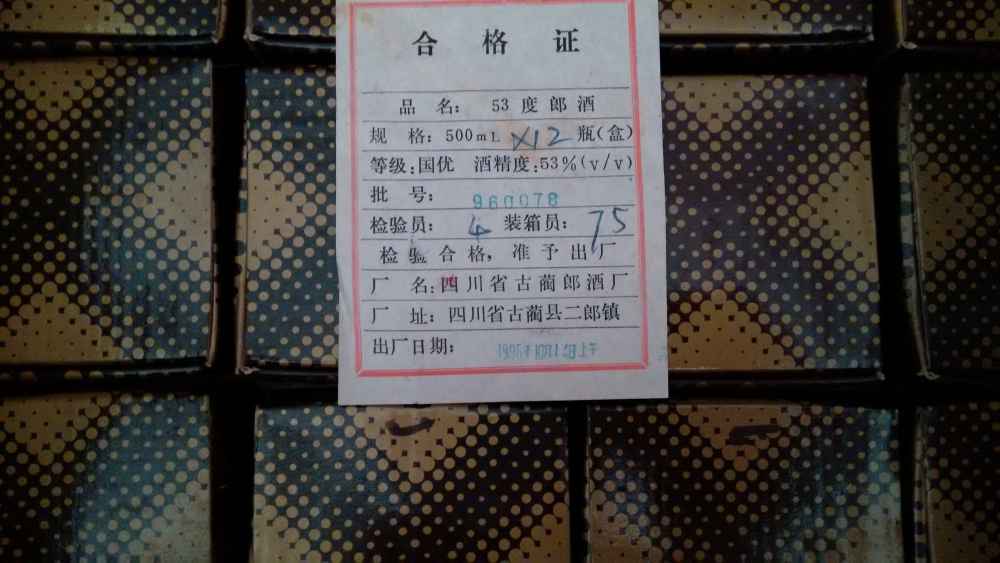 合格证
品 名： 53度郎酒
规 格：500mL ×12 瓶(盒)
等级：国优 酒精度：53%(v/v)
批 号： 960078
检验员： 4 装箱员： 75
检验合格，准予出厂
厂 名：四川省古蔺郎酒厂
厂 址：四川省古蔺县二郎镇
出厂日期：